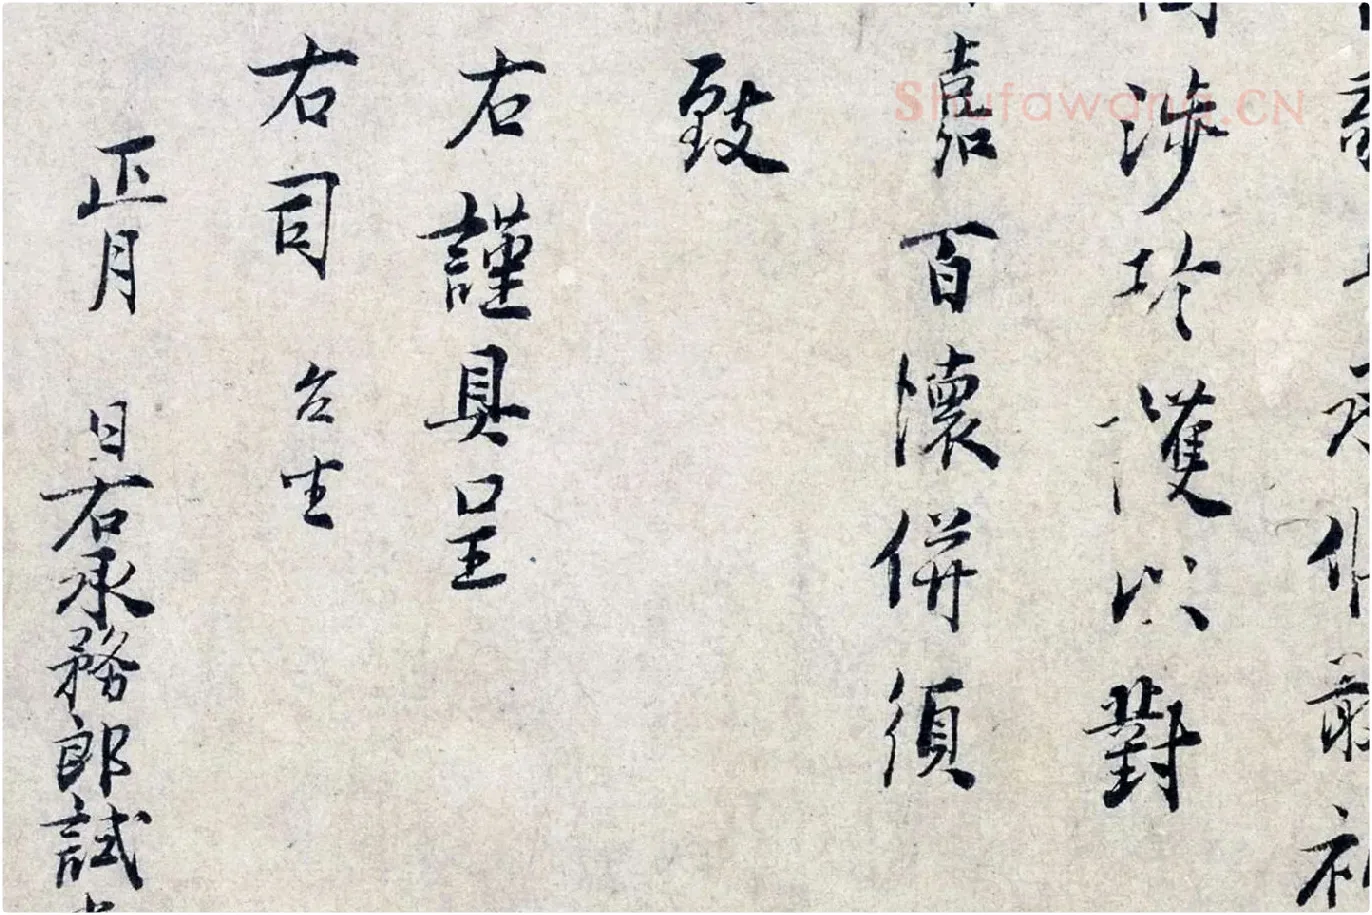 作最
涉珍護以對
嘉百懷併須
致
右謹具呈
右司 台坐
正月 日右承務郎試
Shufawang.CN